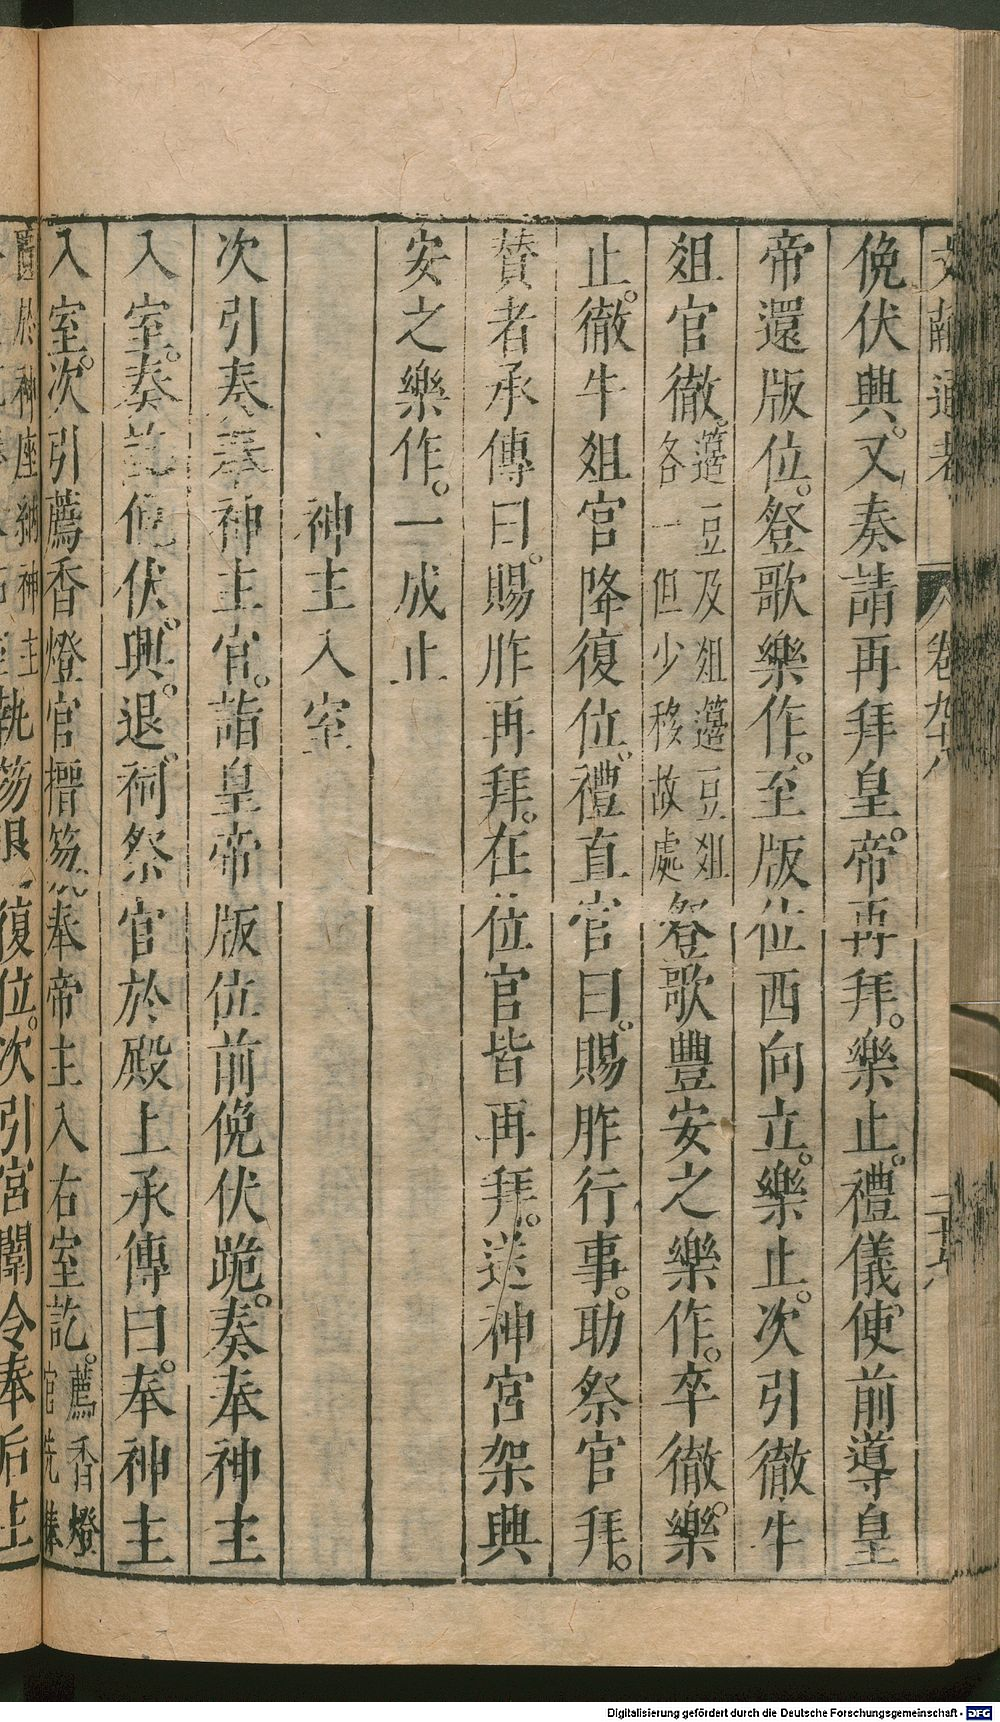 文獻通考 卷九十八
俛伏興。又奏請再拜皇帝。再拜。樂止。禮儀使前導皇
帝還版位。登歌樂作。至版位西向立。樂止。次引徹牛
俎官徹。籩豆及俎籩豆俎各一但少移故處登歌豐安之樂作。卒徹。樂
止。徹牛俎官降復位。禮直官曰。賜胙行事。助祭官拜。
贊者承傳曰。賜胙再拜。在位官皆再拜。送神宮架興
安之樂作。一成止
神主入室
次引奏奉神主官。詣皇帝版位前俛伏跪。奏奉神主
入室。奏訖俛伏。興。退。祠祭官於殿上承傳曰。奉神主
入室。次引薦香燈官搢笏奉帝主入右室訖。薦香燈官先捧
匱於神座納神主執笏退復位。次引宮闈令奉后主
Digitalisierung gefördert durch die Deutsche Forschungsgemeinschaft - DFG